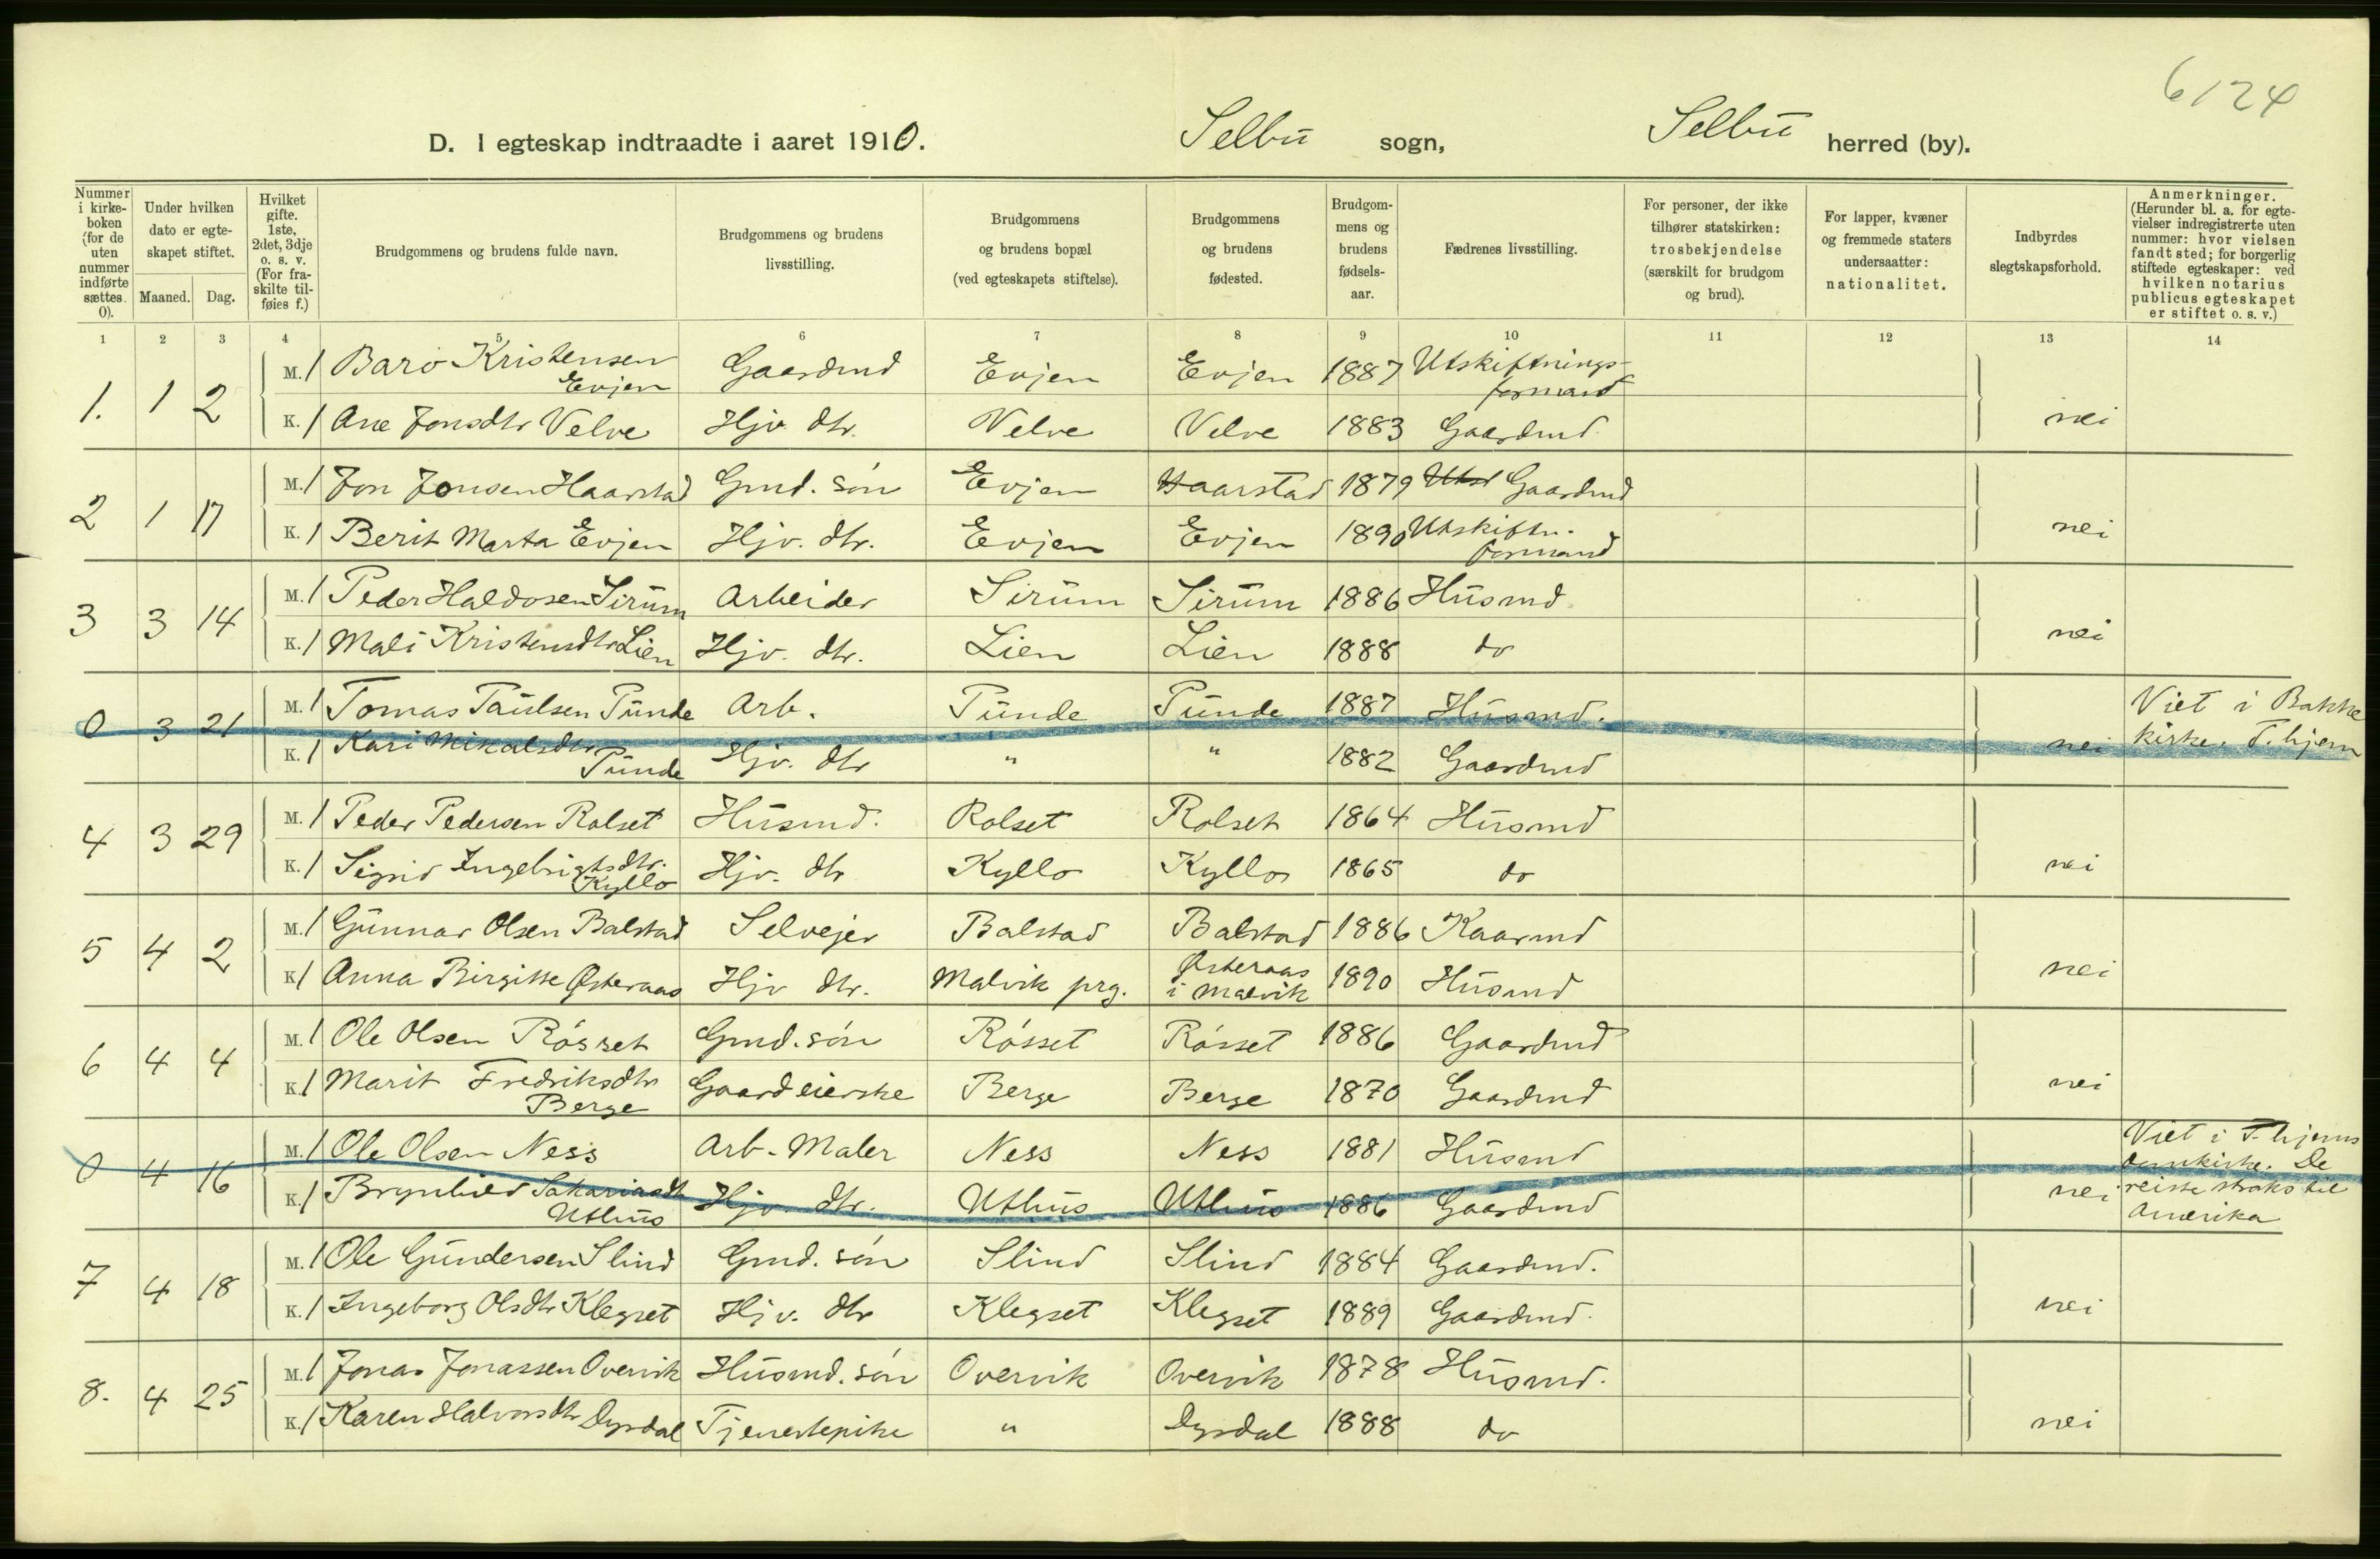 6124
D. I egteskap indtraadte i aaret 1910. Selbu sogn, Selbu herred (by).
Nummer i kirkeboken (for de uten nummer indførte sættes 0).
Under hvilken dato er egteskapet stiftet.
Maaned. Dag.
Hvilket gifte. 1ste, 2det, 3dje o. s. v. (For fraskilte tilføies f.)
Brudgommens og brudens fulde navn.
Brudgommens og brudens livsstilling.
Brudgommens og brudens bopæl (ved egteskapets stiftelse).
Brudgommens og brudens fødested.
Brudgommens og brudens fødselsaar.
Fædrenes livsstilling.
For personer, der ikke tilhører statskirken: trosbekjendelse (særskilt for brudgom og brud).
For lapper, kvæner og fremmede staters undersaatter: nationalitet.
Indbyrdes slegtskapsforhold.
Anmerkninger. (Herunder bl. a. for egtevielser indregistrerte uten nummer: hvor vielsen fandt sted; for borgerlig stiftede egteskaper: ved hvilken notarius publicus egteskapet er stiftet o. s. v.)
1 2 3 4 5 6 7 8 9 10 11 12 13 14
1. 1 2 M. 1 Baro Kristensen Evjen Gaardmd Evjen Evjen 1887 Utskiftningsformand
K. 1 Ane Jonsdtr Velve Hjv. dtr. Velve Velve 1883 Gaardmd. nei
2 1 17 M. 1 Jon Jonsen Haarstad Gmd. søn Evjen Haarstad 1879 Utsk Gaardmd
K. 1 Berit Marta Evjen Hjv. dtr. Evjen Evjen 1890 Utskiftn. formand nei
3 3 14 M. 1 Peder Haldosen Sirum Arbeider Sirum Sirum 1886 Husmd.
K. 1 Mali Kristensdtr Lien Hjv. dtr. Lien Lien 1888 do nei
0 3 21 M. 1 Tomas Paulsen Punde Arb. Punde Punde 1887 Husmd. Viet i Bakke
K. 1 Kari Mikalsdtr Punde Hjv. dtr " " 1882 Gaardmd nei kirke. T.hjem
4 3 29 M. 1 Peder Pedersen Rolset Husmd. Rolset Rolset 1864 Husmd
K. 1 Sigrid Ingebrigtsdtr. Kyllo Hjv. dtr Kyllo Kyllo 1865 do nei
5 4 2 M. 1 Gunnar Olsen Balstad Selvejer Balstad Balstad 1886 Kaarmd
K. 1 Anna Birgitte Østeraas Hjv dtr. Malvik prg. Østeraas i Malvik 1890 Husmd nei
6 4 4 M. 1 Ole Olsen Røsset Gmd. søn Røsset Røsset 1886 Gaardmd
K. 1 Marit Fredriksdtr Berge Gaardeierske Berge Berge 1870 Gaardmd nei
0 4 16 M. 1 Ole Olsen Ness Arb. Maler Ness Ness 1881 Husmd Viet i T.hjems domkirke. De
K. 1 Brynhild Sakariasdtr Uthus Hjv. dtr. Uthus Uthus 1886 Gaardmd nei reiste straks til Amerika
7 4 18 M. 1 Ole Gundersen Slind Gmd. søn Slind Slind 1884 Gaardmd.
K. 1 Ingeborg Olsdtr Klegset Hjv. dtr Klegset Klegset 1889 Gaardmd. nei
8. 4 25 M. 1 Jonas Jonassen Overvik Husmd. søn Overvik Overvik 1878 Husmd.
K. 1 Karen Halvorsdtr Dyrdal Tjenestepike " Dyrdal 1888 do nei